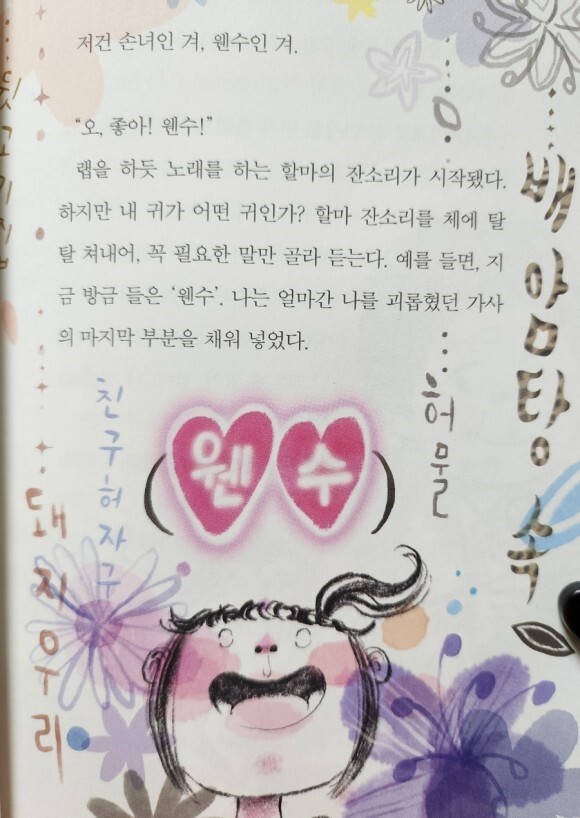 저건 손녀인 겨, 웬수인 겨.
“오, 좋아! 웬수!”
랩을 하듯 노래를 하는 할마의 잔소리가 시작됐다.
하지만 내 귀가 어떤 귀인가? 할마 잔소리를 체에 탈
탈 쳐내어, 꼭 필요한 말만 골라 듣는다. 예를 들면, 지
금 방금 들은 ‘웬수’. 나는 얼마간 나를 괴롭혔던 가사
의 마지막 부분을 채워 넣었다.
(웬수)
친구허자구
돼지우리
허물
배암탕 속
고기집